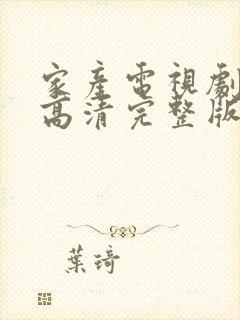 家產電視劇
高清完整版
葉琦